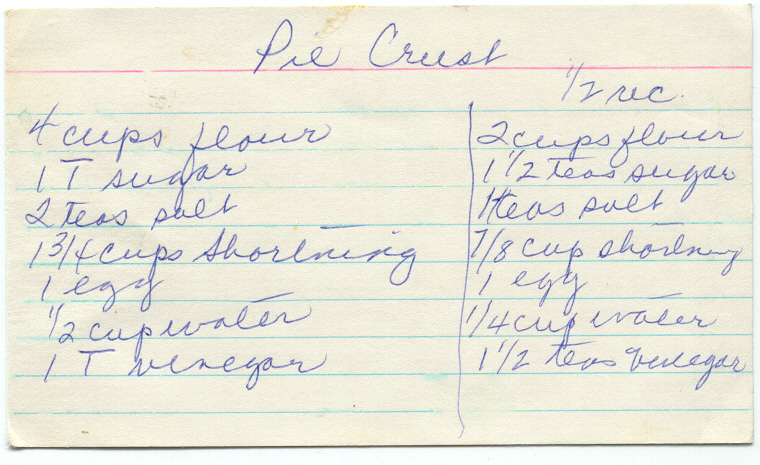 Pie Crust
1/2 rec.
4 cups flour
1 T sugar
2 teas salt
1 3/4 cups shortning
1 egg
1/2 cup water
1 T vinegar
2 cups flour
1 1/2 teas sugar
1 teas salt
7/8 cup shortning
1 egg
1/4 cup water
1 1/2 teas vinegar